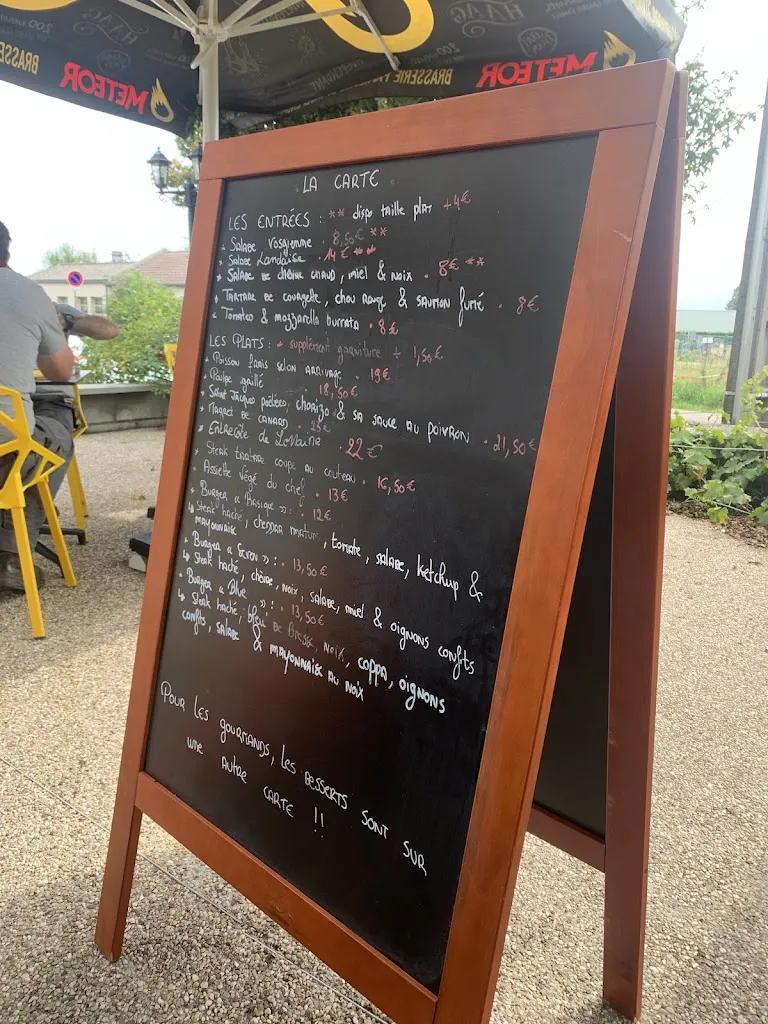 BRASSERIE
METEOR
BRASSERIE
METEOR
LA CARTE
LES ENTRÉES : ** dispo taille plat +4€
* Salade Vosgienne . 8,50€ **
* Salade Landaise . 14€ **
* Salade de chèvre chaud, miel & noix . 8€ **
* Tartare de courgette, chou rouge & saumon fumé . 8€
* Tomates & mozzarella burrata . 8€
LES PLATS : * supplément garniture + 1,50€
* Poisson frais selon arrivage . 19€
* Poulpe grillé . 18,50€
* Saint Jacques poêlées, chorizo & sa sauce au poivron . 21,50€
* Magret de canard . 23€
* Entrecôte de Lorraine 22€
Steak tartare coupé au couteau . 16,50€
Assiette végé du chef . 13€
* Burger « Basique » : . 12€
↳ Steak haché, cheddar mature, tomate, salade, ketchup &
mayonnaise
* Burger « » : . 13,50€
↳ Steak haché, chèvre, noix, salade, miel & oignons confits
* Burger « Blue » : . 13,50€
↳ Steak haché, bleu de Bresse, noix, coppa, oignons
confits, salade & mayonnaise au noix
Pour les gourmands, les desserts sont sur
une autre carte !!